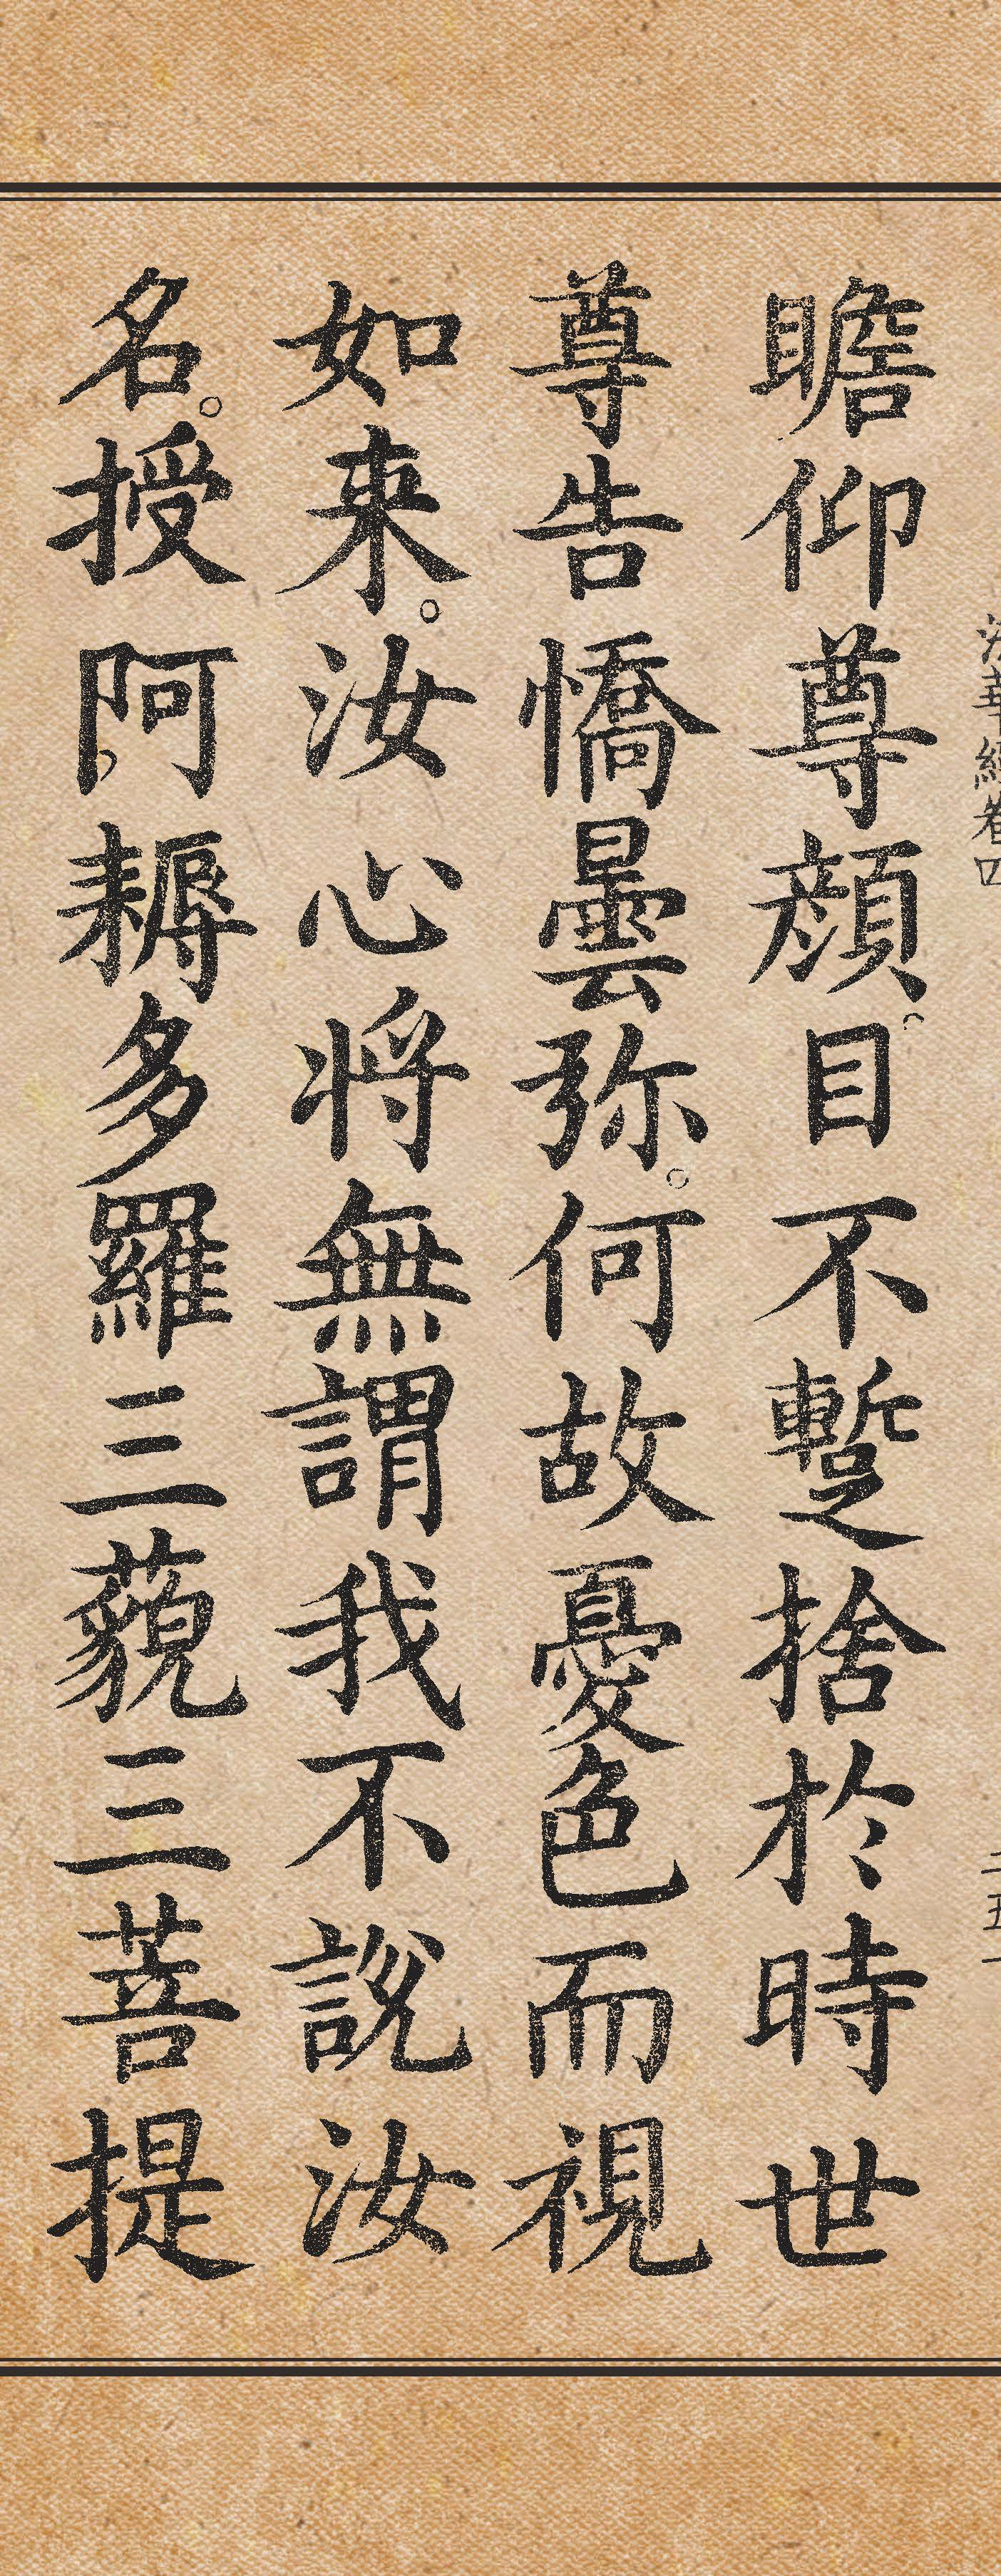 法華經卷四
二五一
瞻仰尊顔。目不蹔捨於時世
尊告憍曇弥。何故憂色而視
如来。汝心将無謂我不說汝
名。授阿耨多羅三藐三菩提